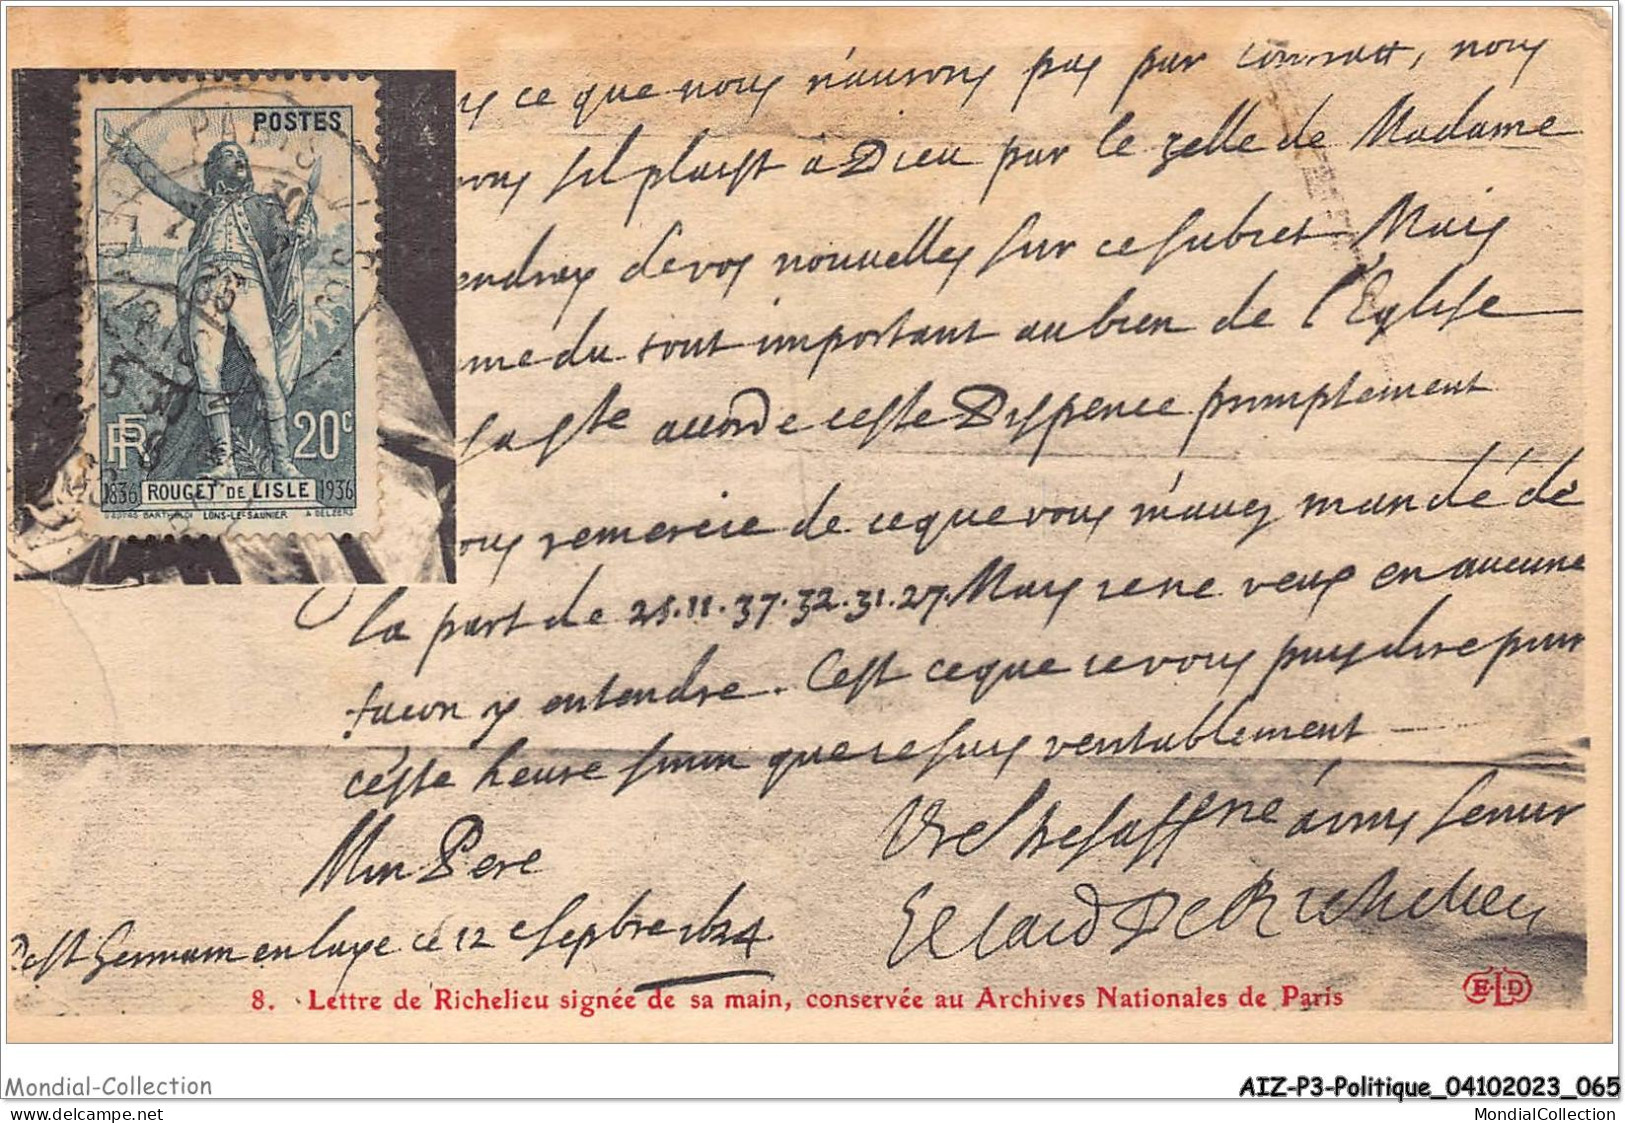 POSTES
RF 20c
1836 ROUGET DE LISLE 1936
D'APRES BARTHOLDI LONS-LE-SAUNIER A. DELZERS
ce que nous n'aurons pas par nous
sil plaist a Dieu par le zelle de Madame
de vos nouuelles sur ce subret Mais
du tout important au bien de l'Eglise
accorde ceste Dispence promptement
remercie de ce que vous m'auez mandé de
la part de 37.32.31.27. Mais je ne veus en aucune
facon y entendre. Cest ce que je vous puis dire pour
ceste heure sinon que je suis veritablement
Mon Pere
Vre tresaffne a vous seruir
Le Card De Richelieu
De St Germain en laye ce 12 Septbre 1624
8. Lettre de Richelieu signée de sa main, conservée au Archives Nationales de Paris
E.L.D
Mondial-Collection
AIZ-P3-Politique_04102023_065
delcampe.net
MondialCollection